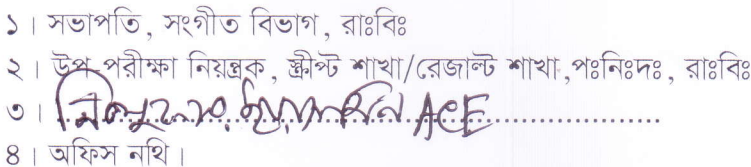 ১। সভাপতি, সংগীত বিভাগ, রাঃবিঃ
২। উপ-পরীক্ষা নিয়ন্ত্রক, স্ক্রীপ্ট শাখা/রেজাল্ট শাখা,পঃনিঃদঃ, রাঃবিঃ
৩। ACE
৪। অফিস নথি।